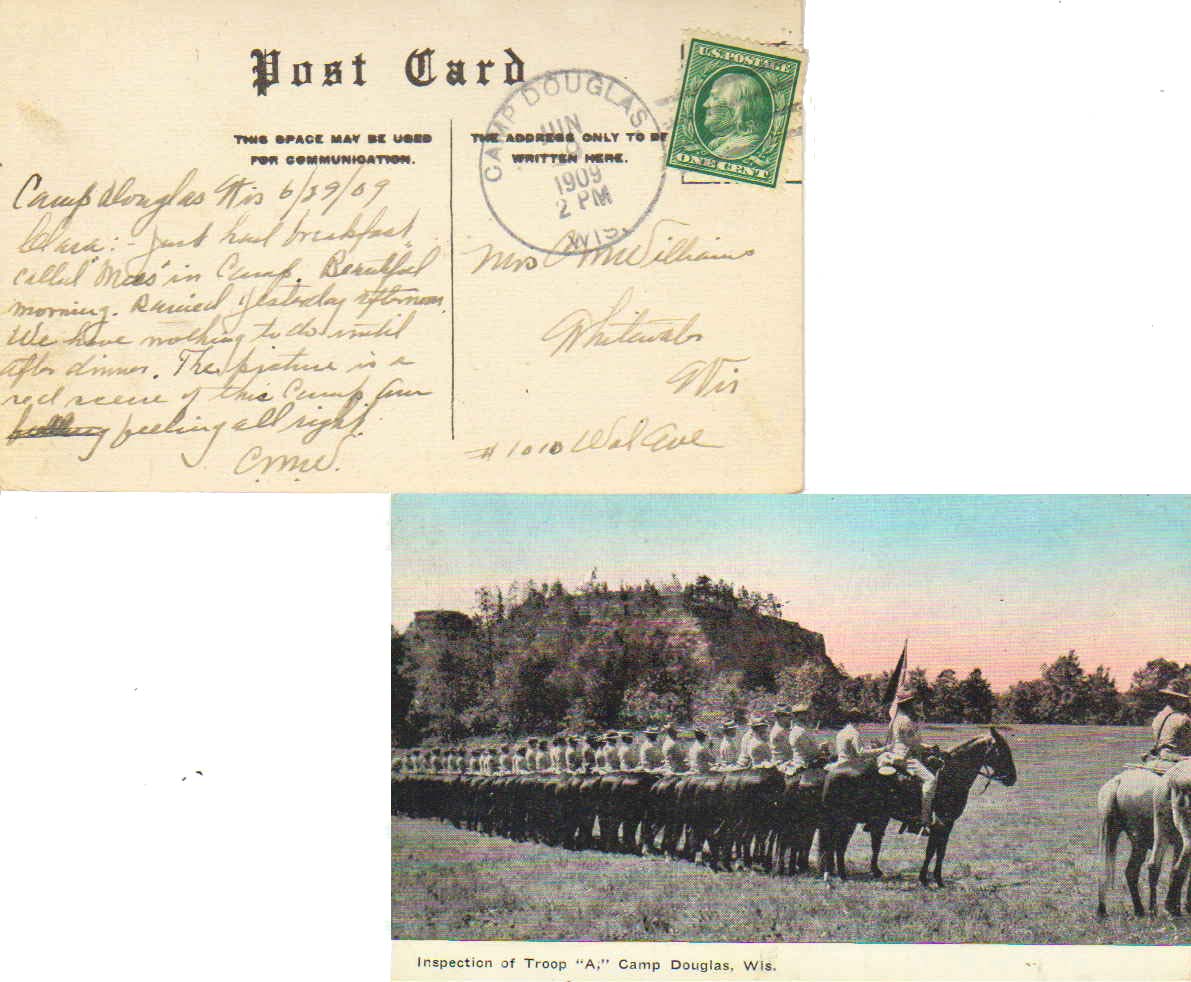 Post Card
THIS SPACE MAY BE USED
FOR COMMUNICATION.
THE ADDRESS ONLY TO BE
WRITTEN HERE.
CAMP DOUGLAS
JUN
1909
2 PM
WIS.
U.S. POSTAGE
ONE CENT
Camp Douglas Wis 6/29/09
Clara:- Just had breakfast
called "Mess" in Camp. Beautiful
morning. Rained yesterday afternoon.
We have nothing to do until
after dinner. The picture is a
real scene of this Camp. Am
feeling all right.
CMW.
Mrs C M Williams
Whitewater
Wis
#1010 Wal Ave
Inspection of Troop "A," Camp Douglas, Wis.